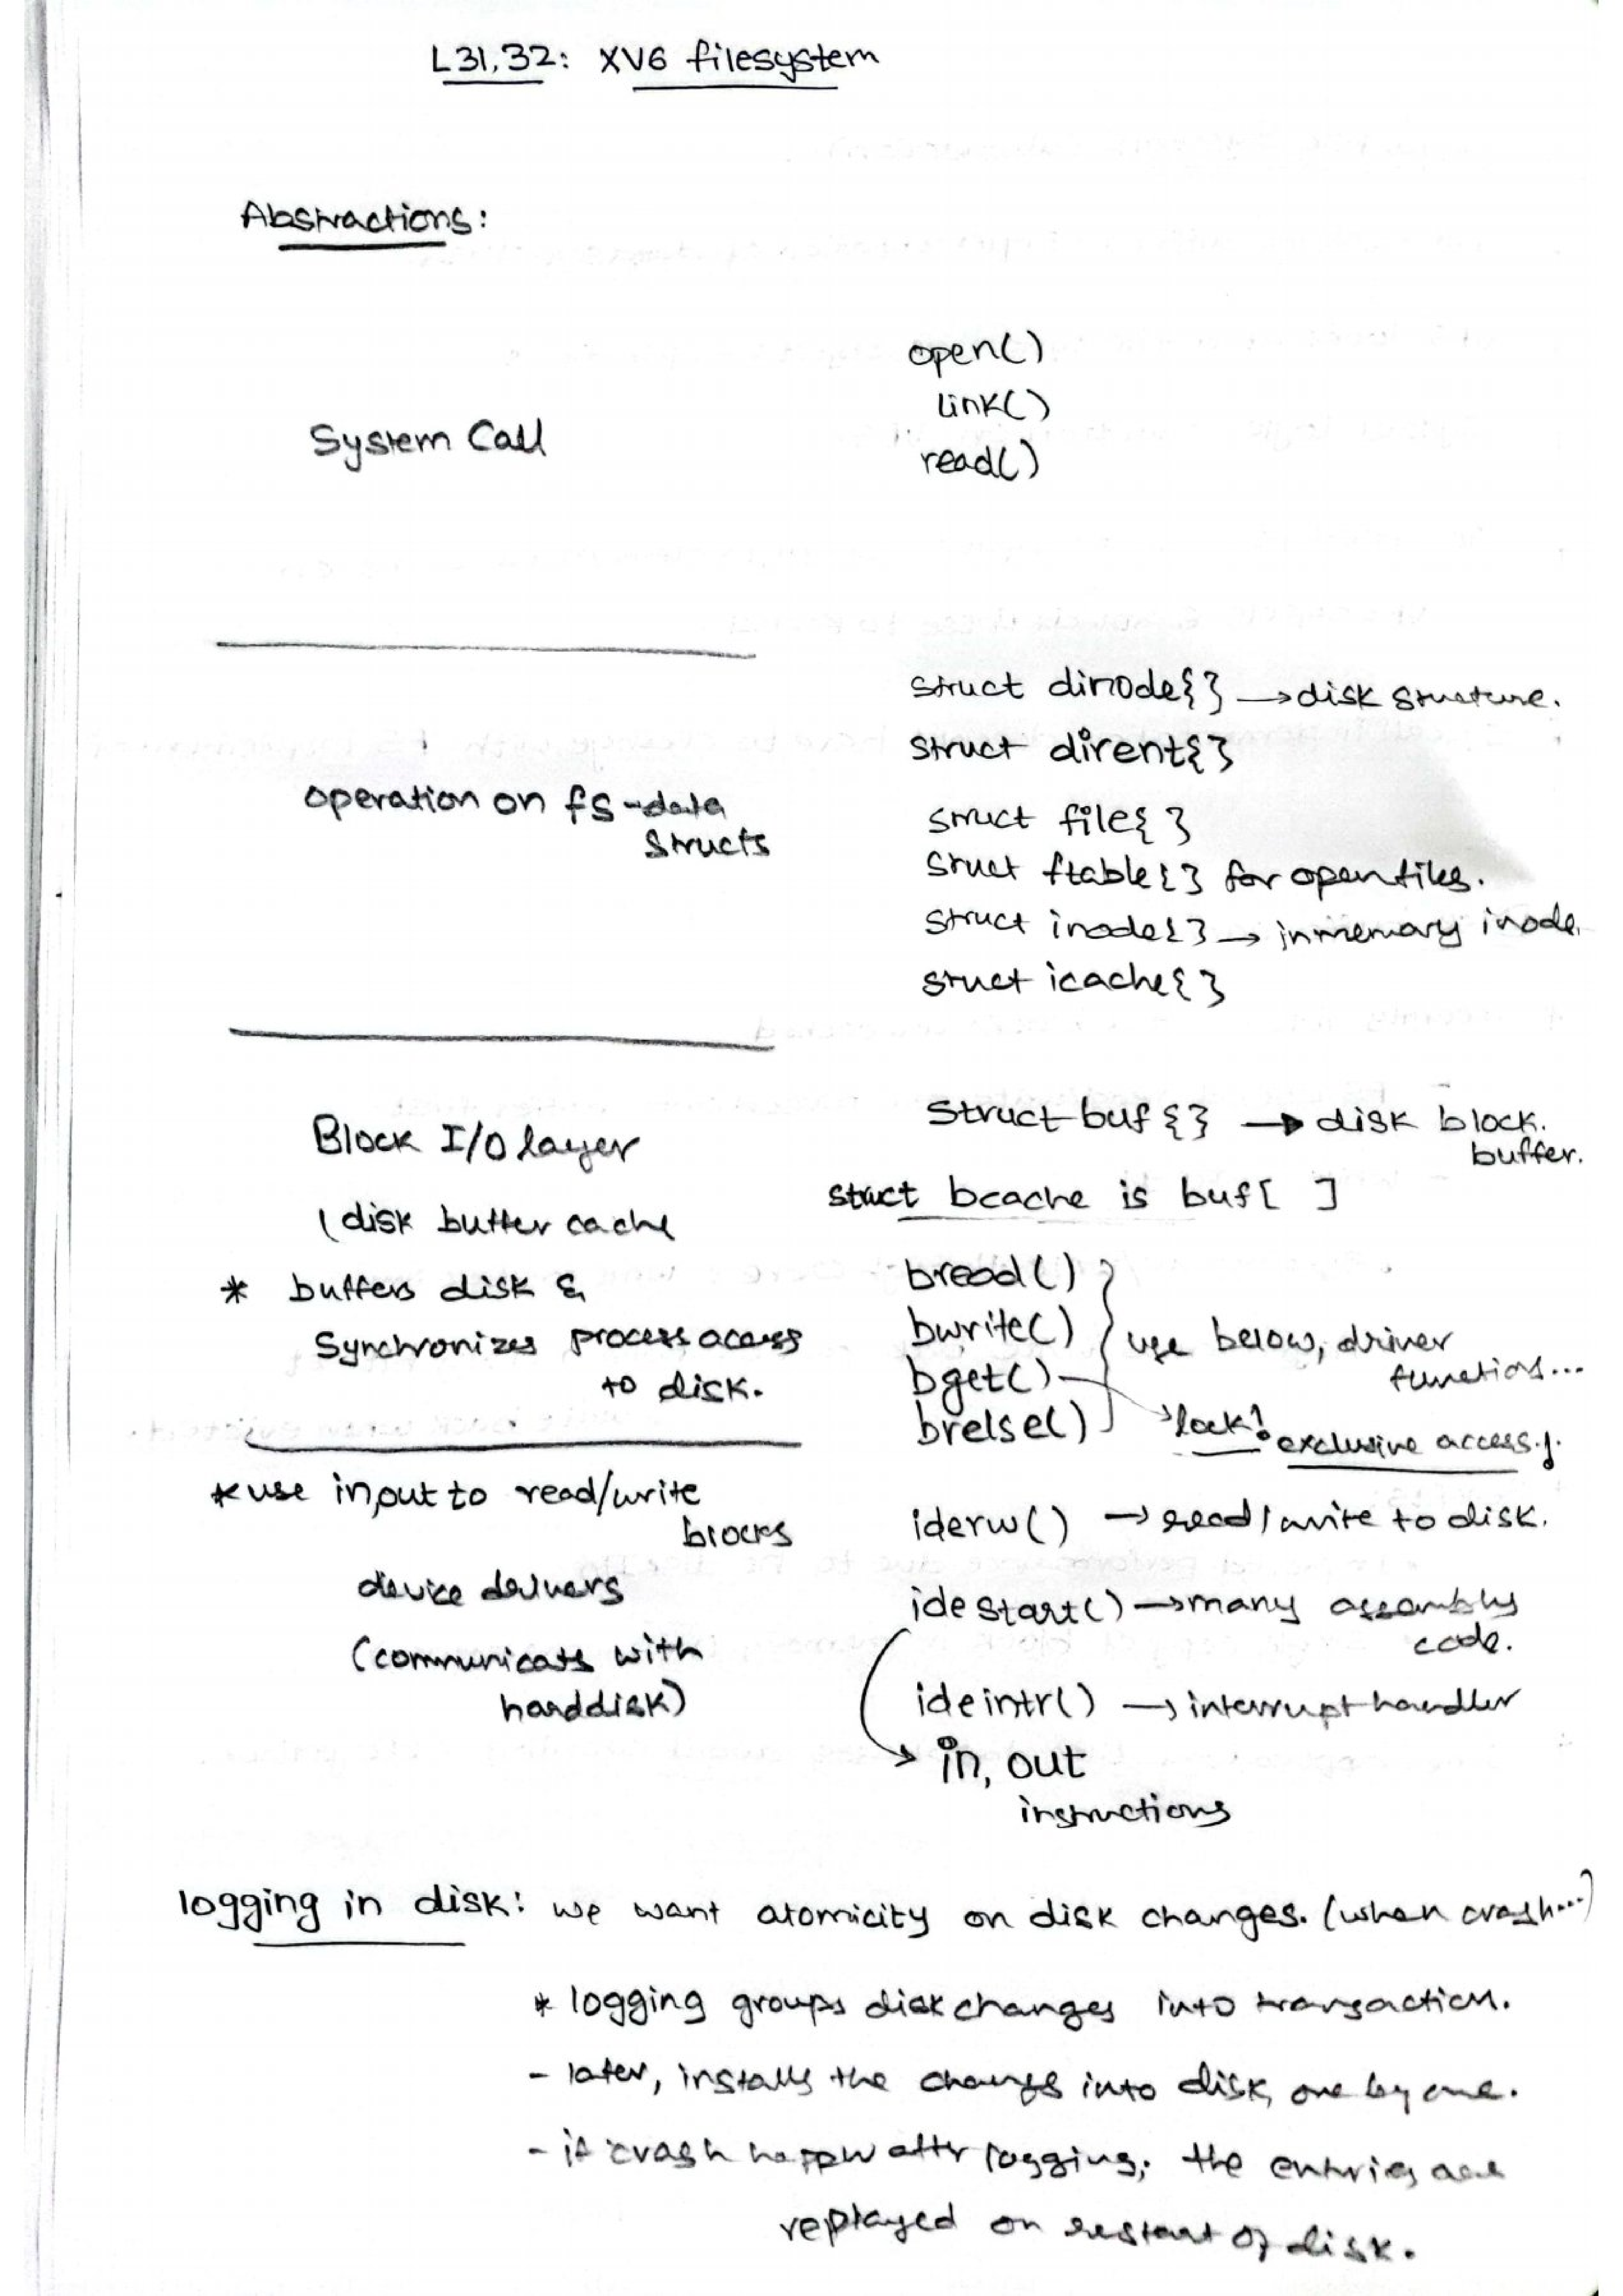 L31,32: XV6 filesystem
Abstractions:
System Call
open()
link()
read()
operation on fs-data
structs
struct dinode{} → disk structure.
struct dirent{}
struct file{ }
struct ftable{} for open files.
struct inode{} → inmemory inode.
struct icache{ }
Block I/O layer
(disk buffer cache
* buffers disk &
Synchronizes process access
to disk.
Struct buf {} → disk block.
buffer.
struct bcache is buf[ ]
bread()
bwrite()
bget()
brelse()
use below, driver
functions...
lock! exclusive access.
* use in,out to read/write
blocks
device drivers
(communicates with
harddisk)
iderw() → read/write to disk.
idestart() → many assembly
code.
ideintr() → interrupt handler
in, out
instructions
logging in disk: we want atomicity on disk changes. (when crash...)
* logging groups disk changes into transaction.
- later, installs the changes into disk, one by one.
- if crash happen after logging; the entries are
replayed on restart of disk.